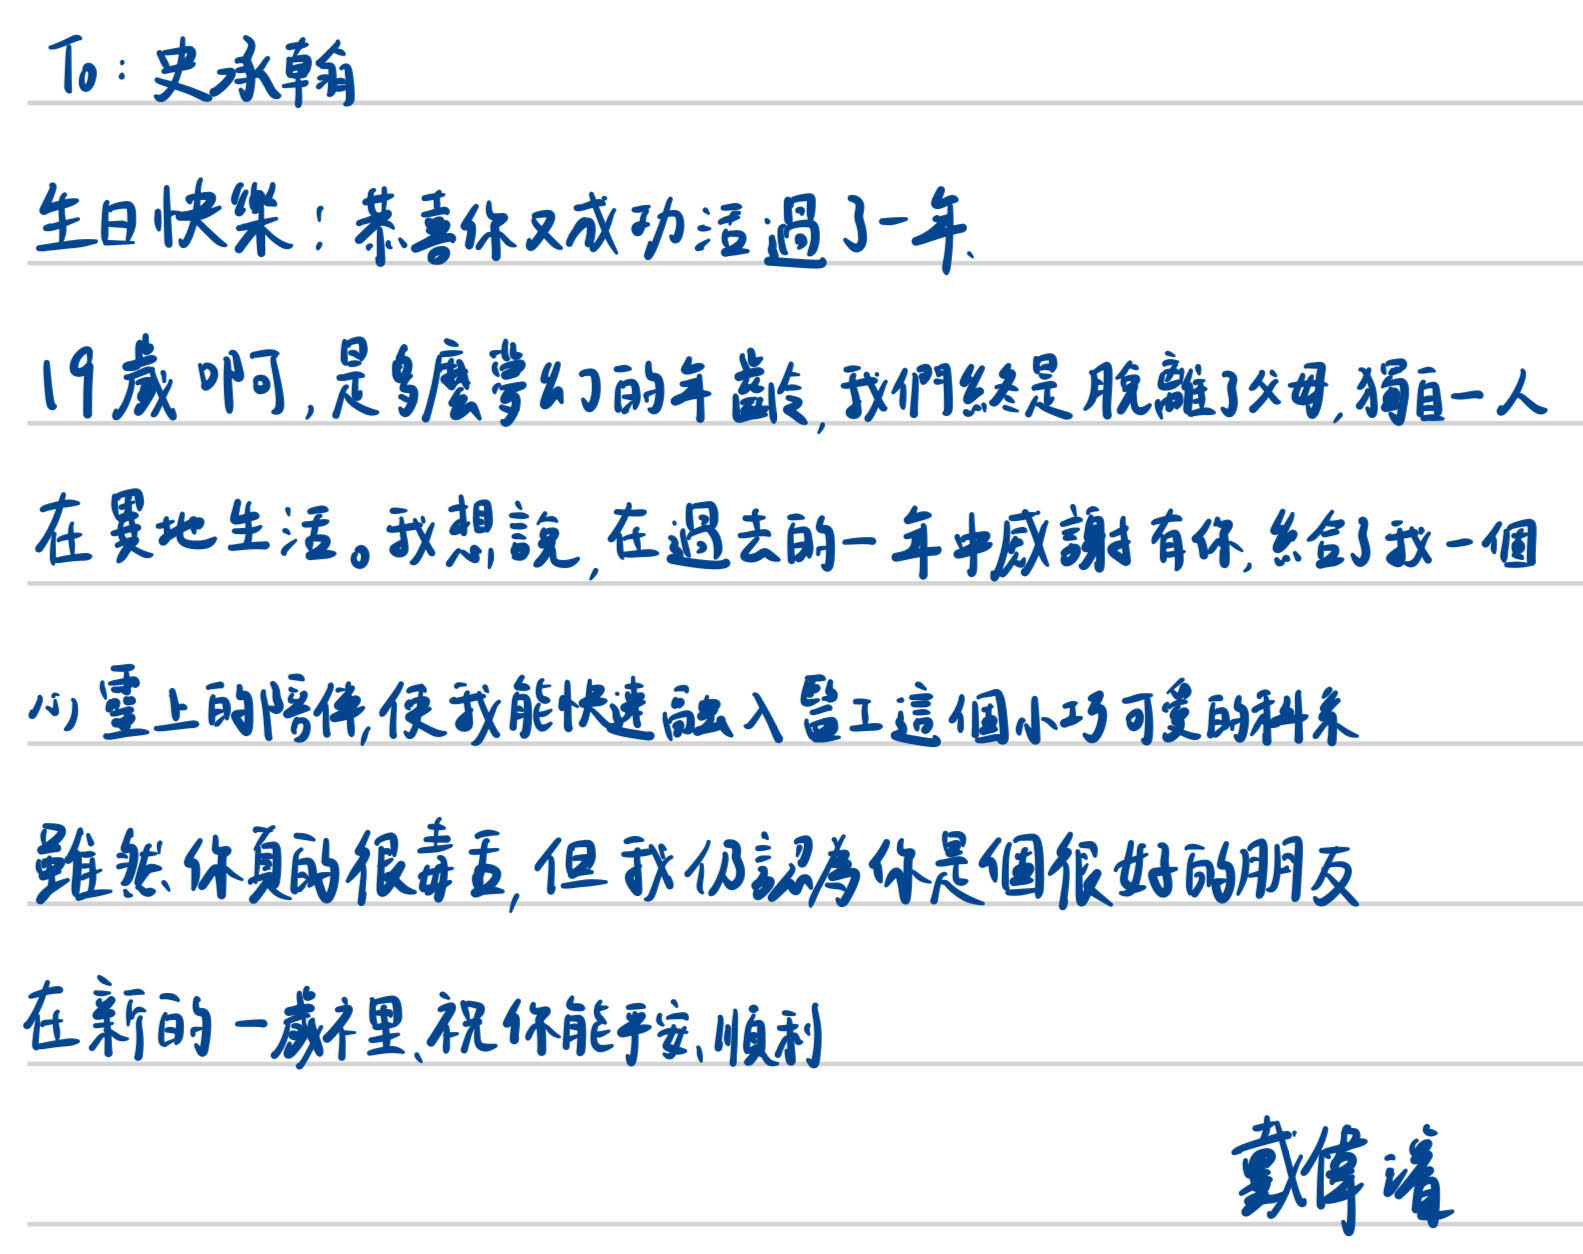 To：史承翰
生日快樂！恭喜你又成功活過了一年、
19歲啊，是多麼夢幻的年齡，我們終是脫離了父母，獨自一人
在異地生活。我想說，在過去的一年中感謝有你，給了我一個
心靈上的陪伴，使我能快速融入醫工這個小巧可愛的科系
雖然你真的很毒舌，但我仍認為你是個很好的朋友
在新的一歲裡、祝你能平安、順利
戴偉濬